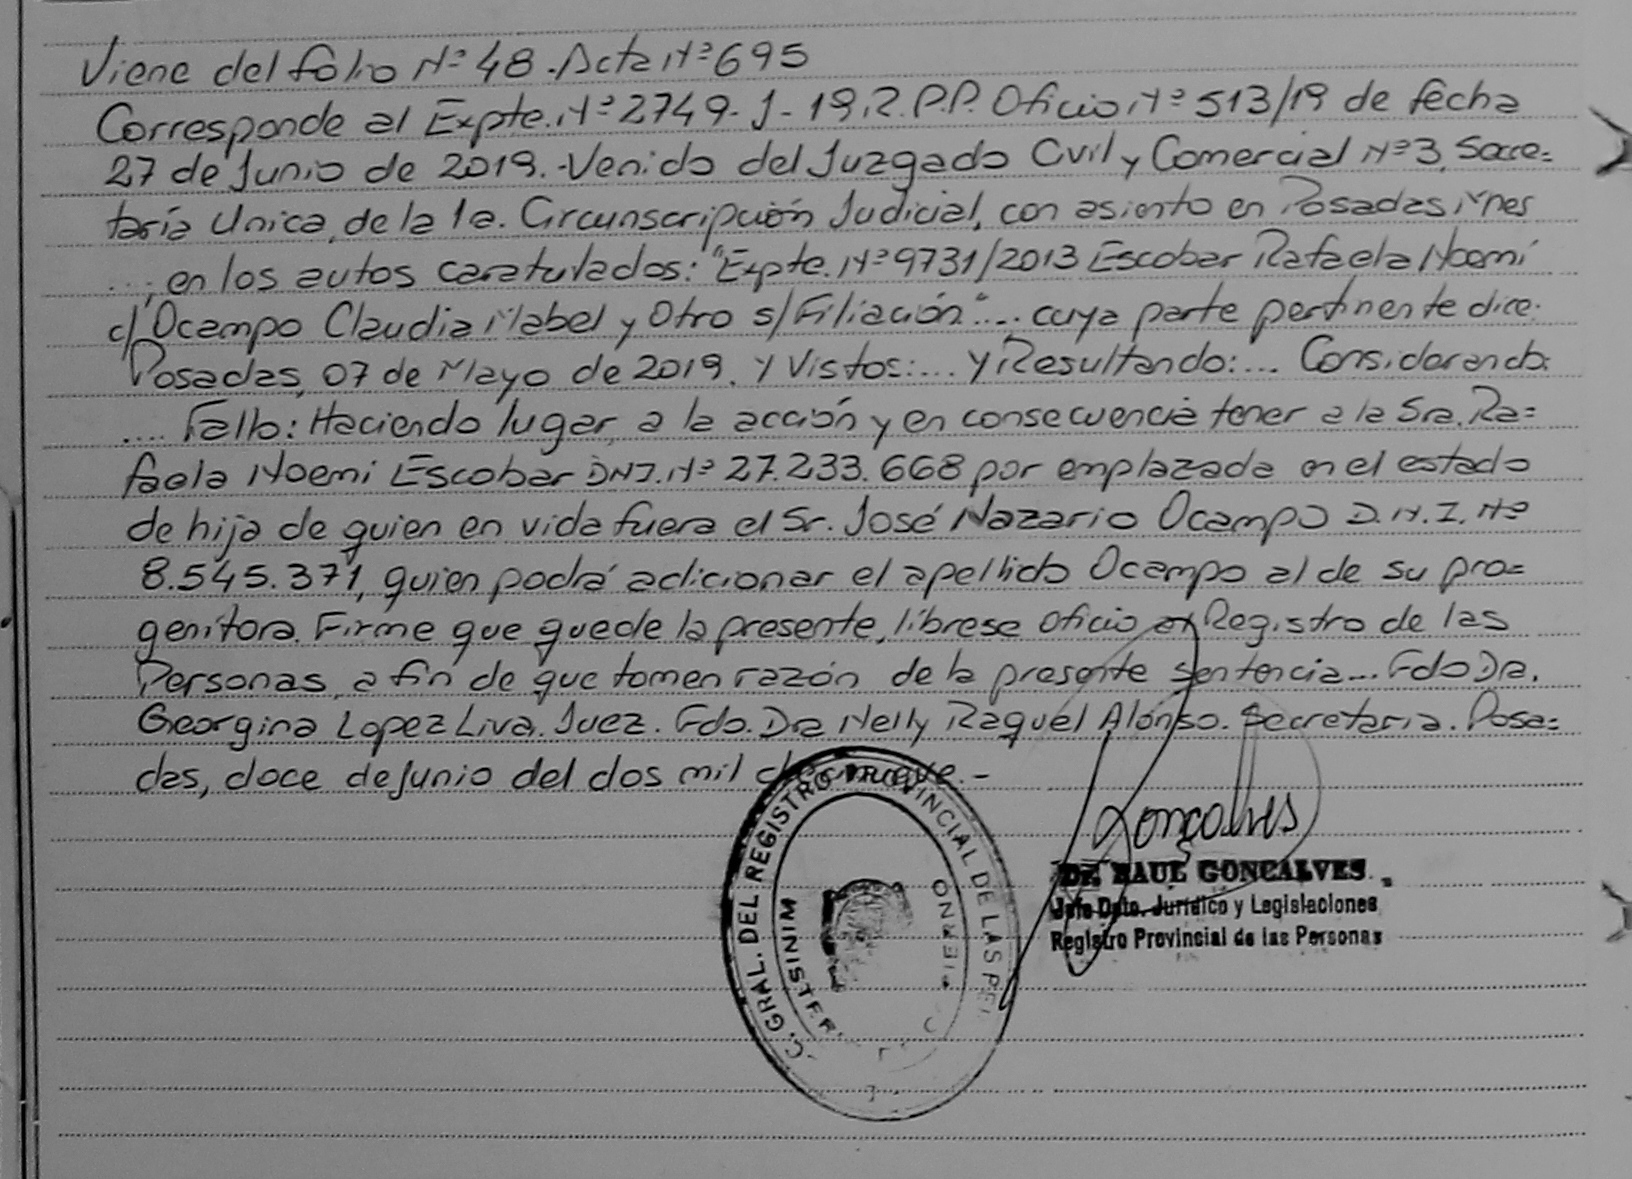 Viene del folio Nº 48. Acta Nº 695
Corresponde al Expte. Nº 2749- J - 19, R.P.P. Oficio Nº 513/19 de fecha
27 de Junio de 2019.- Venido del Juzgado Civil y Comercial Nº 3, Secre=
taría Unica, de la 1a. Circunscripción Judicial, con asiento en Posadas, Mnes
...; en los autos caratulados: "Expte. Nº 9731/2013 Escobar Rafaela Noemí
c/ Ocampo Claudia Mabel y Otro s/ Filiación" .... cuya parte pertinente dice:
Posadas, 07 de Mayo de 2019. Y Vistos:.... Y Resultando:... Considerando:
.... Fallo: Haciendo lugar, a la acción y en consecuencia tener a la Sra. Ra=
faela Noemi Escobar DNI. Nº 27.233.668 por emplazada en el estado
de hija de quien en vida fuera el Sr. José Nazario Ocampo D.N.I. Nº
8.545.371, quien podrá adicionar el apellido Ocampo al de su pro=
genitora. Firme que quede la presente, líbrese oficio al Registro de las
Personas, a fin de que tomen razón de la presente sentencia... Fdo Dra.
Georgina Lopez Liva. Juez. Fdo. Dra Nelly Raquel Alonso. Secretaria. Posa=
das, doce de Junio del dos mil diecinueve.-
C. GRAL. DEL REGISTRO PROVINCIAL DE LAS PE
MINISTER
OBIERNO
Goncalves
Dr. RAUL GONCALVES
Jefe Dpto. Jurídico y Legislaciones
Registro Provincial de las Personas